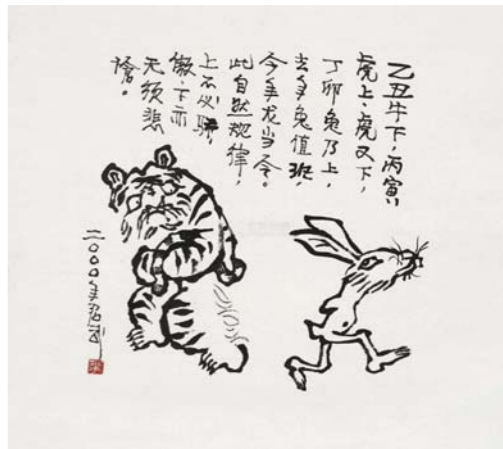 乙丑牛下，丙寅
虎上、虎又下，
丁卯兔乃上，
去年兔值班，
今年龙当令。
此自然规律，
上不必骄
傲、下亦
无须悲
怆。
二〇〇〇年君武